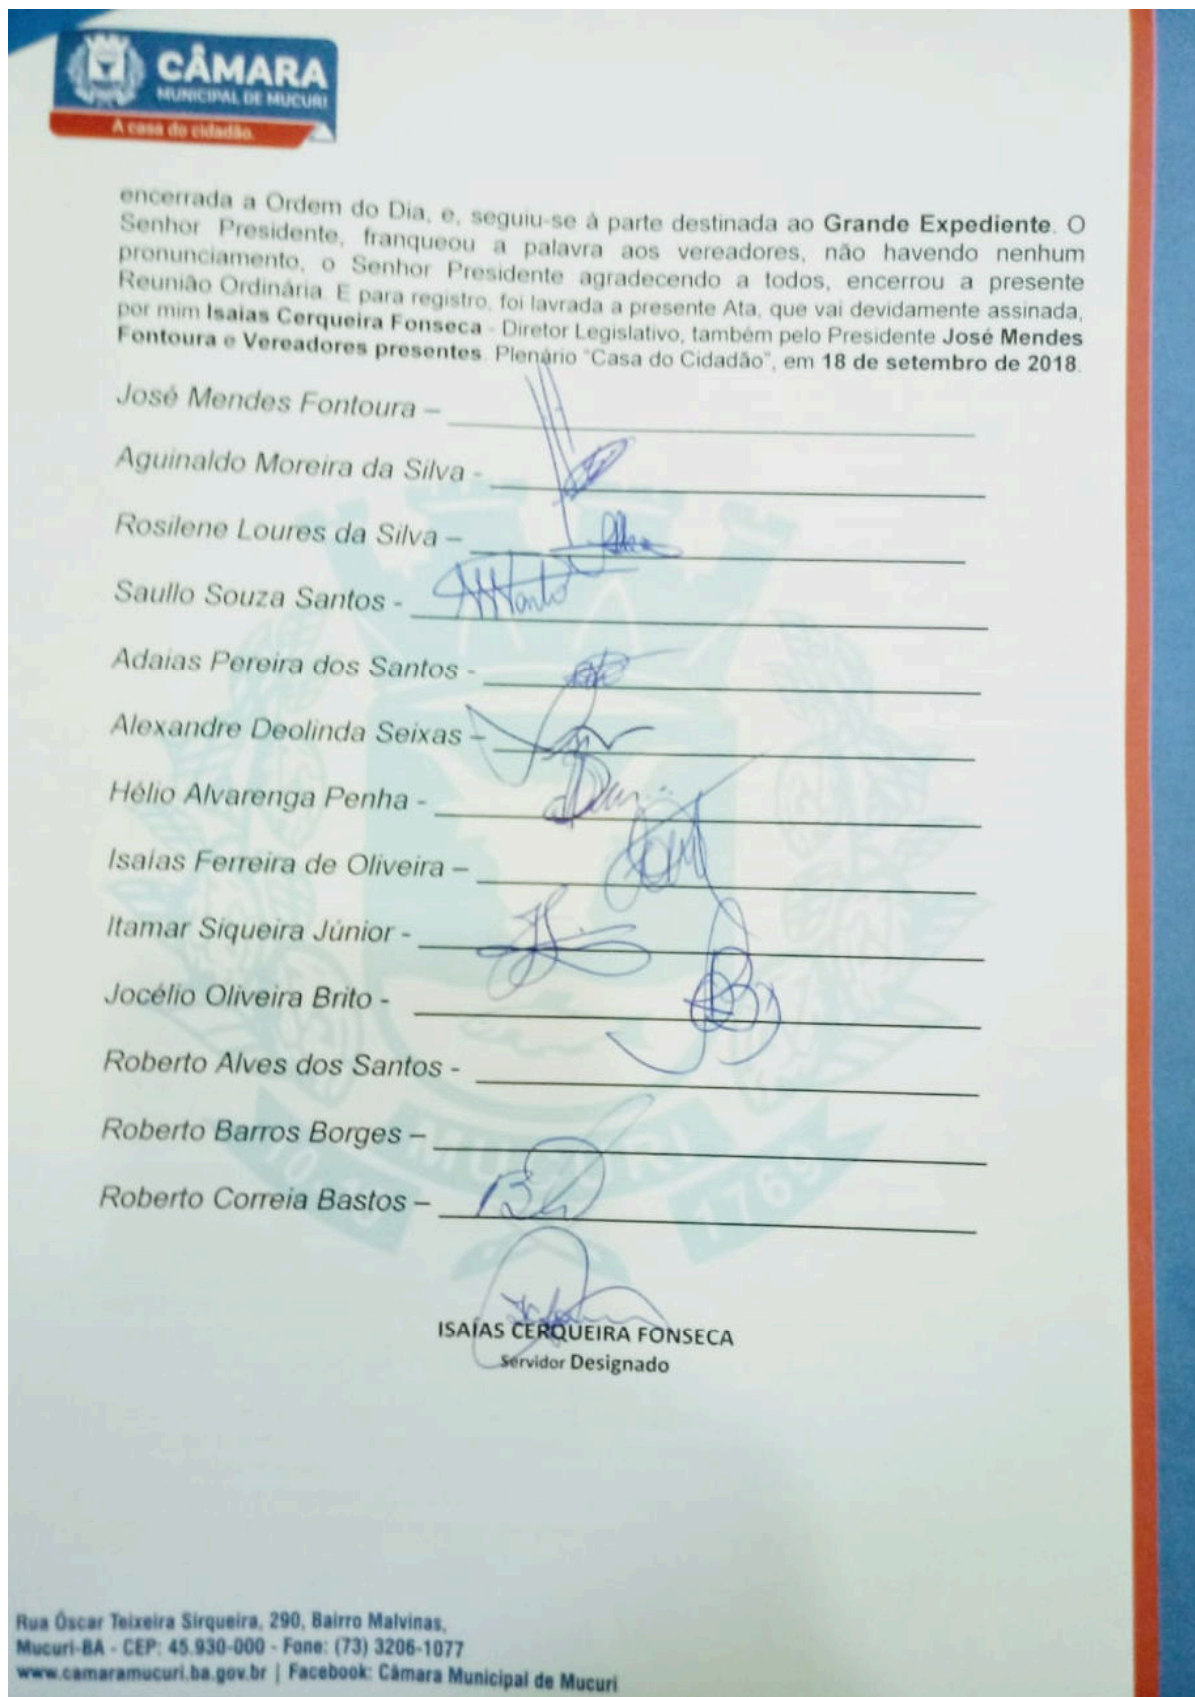 CÂMARA
MUNICIPAL DE MUCURI
A casa do cidadão.
encerrada a Ordem do Dia, e, seguiu-se à parte destinada ao Grande Expediente. O
Senhor Presidente, franqueou a palavra aos vereadores, não havendo nenhum
pronunciamento, o Senhor Presidente agradecendo a todos, encerrou a presente
Reunião Ordinária. E para registro, foi lavrada a presente Ata, que vai devidamente assinada,
por mim Isaias Cerqueira Fonseca - Diretor Legislativo, também pelo Presidente José Mendes
Fontoura e Vereadores presentes. Plenário "Casa do Cidadão", em 18 de setembro de 2018.
José Mendes Fontoura –
Aguinaldo Moreira da Silva -
Rosilene Loures da Silva –
Saullo Souza Santos -
Adaias Pereira dos Santos -
Alexandre Deolinda Seixas –
Hélio Alvarenga Penha -
Isaías Ferreira de Oliveira –
Itamar Siqueira Júnior -
Jocélio Oliveira Brito -
Roberto Alves dos Santos -
Roberto Barros Borges –
MUCURI
1769
Roberto Correia Bastos –
ISAÍAS CERQUEIRA FONSECA
Servidor Designado
Rua Óscar Teixeira Sirqueira, 290, Bairro Malvinas,
Mucuri-BA - CEP: 45.930-000 - Fone: (73) 3206-1077
www.camaramucuri.ba.gov.br | Facebook: Câmara Municipal de Mucuri